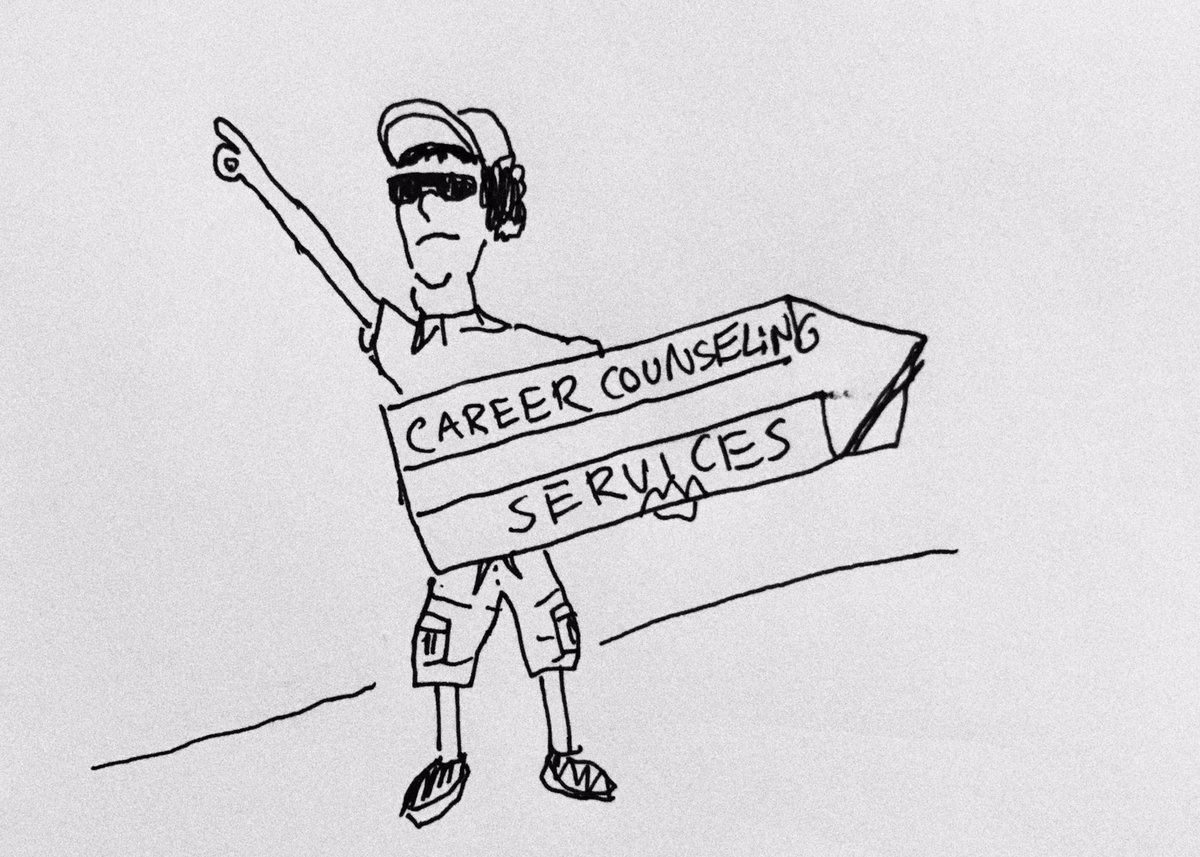 CAREER COUNSELING
SERVICES